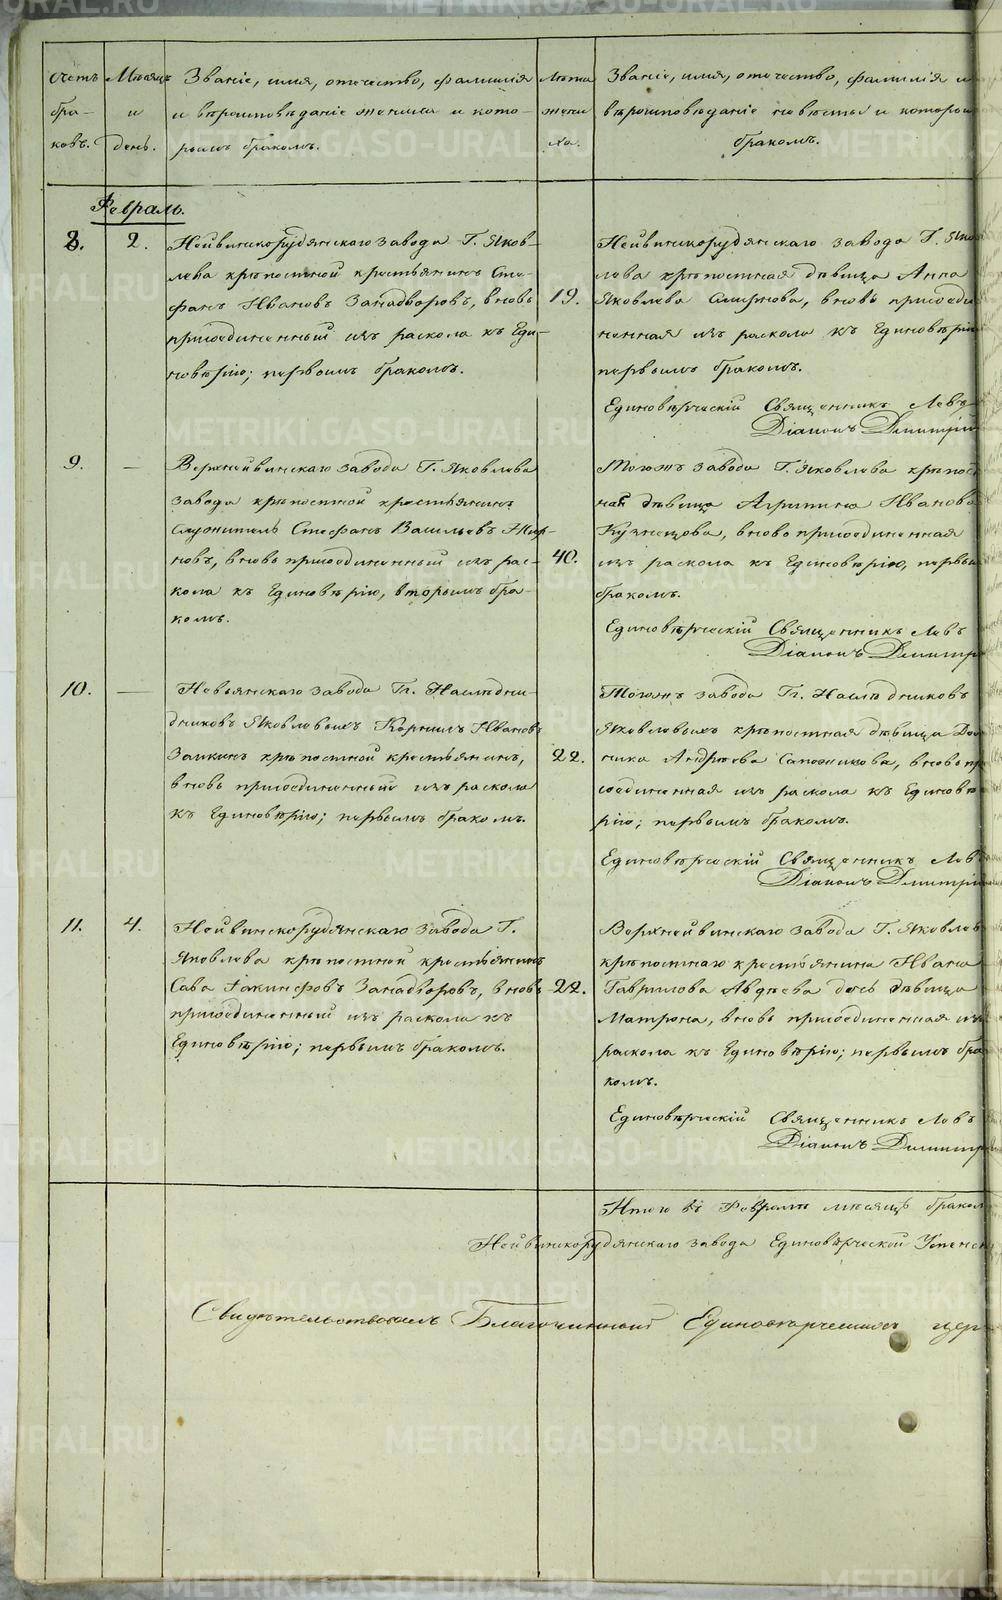 Счетъ
бра-
ковъ.
Мѣсяцъ
и
день.
Званіе, имя, отчество, фамилія
и вѣроисповѣданіе жениха и кото-
рымъ бракомъ.
Лѣта
жени
ха.
Званіе, имя, отчество, фамилія и
вѣроисповѣданіе невѣсты и которым
бракомъ.
Февраль.
8.
2.
Нейвинскорудянскаго завода Г. Яков-
лева крѣпостной крестьянинъ Сте-
фанъ Ивановъ Западворовъ, вновь
присоединенный изъ раскола къ Еди-
новѣрію; первымъ бракомъ.
19.
Нейвинскорудянскаго завода Г. Яко
лева крѣпостная дѣвица Анна
Яковлева Смирнова, вновь присоеди
ненная изъ раскола къ Единовѣрію
первымъ бракомъ.
Единовѣрческій Священникъ Левъ
Діаконъ Димитрій
9.
—
Верхнейвинскаго завода Г. Яковлева
завода крѣпостной крестьянинъ
служитель Стефанъ Васильевъ
новъ, вновь присоединенный изъ рас-
кола къ Единовѣрію, вторымъ бра-
комъ.
40.
Тогожъ завода Г. Яковлева крѣпос
ная дѣвица Агрипина Иванова
Кузнецова, вновь присоединенная
изъ раскола къ Единовѣрію, первым
бракомъ.
Единовѣрческій Священникъ Левъ
Діаконъ Димитр
10.
—
Невьянскаго завода Гг. Наслѣдни-
дниковъ Яковлевыхъ Корнилъ Ивановъ
Заикинъ крѣпостной крестьянинъ,
вновь присоединенный изъ раскола
къ Единовѣрію; первымъ бракомъ.
22.
Тогожъ завода Гг. Наслѣдниковъ
Яковлевыхъ крѣпостная дѣвица До
ника Андрѣева Сапожникова, вновь пр
соединенная изъ раскола къ Единовѣ
рію; первымъ бракомъ.
Единовѣрческій Священникъ Лев
Діаконъ Димитрій
11.
4.
Нейвинскорудянскаго завода Г.
Яковлева крѣпостной крестьянинъ
Сава Іакинфовъ Западворовъ, вновь
присоединенный изъ раскола къ
Единовѣрію; первымъ бракомъ.
22.
Верхнейвинскаго завода Г. Яковлев
крѣпостнаго крестьянина Ивана
Гаврилова Авдѣева дочь дѣвица
Матрона, вновь присоединенная из
раскола къ Единовѣрію; первымъ бра
комъ.
Единовѣрческій Священникъ Левъ
Діаконъ Димитр
Итого въ Февралѣ мѣсяцѣ браков
Нейвинскорудянскаго завода Единовѣрческой Успенск
Свидѣтельствовалъ Благочинный Единовѣрческихъ цер
METRIKI.GASO-URAL.RU